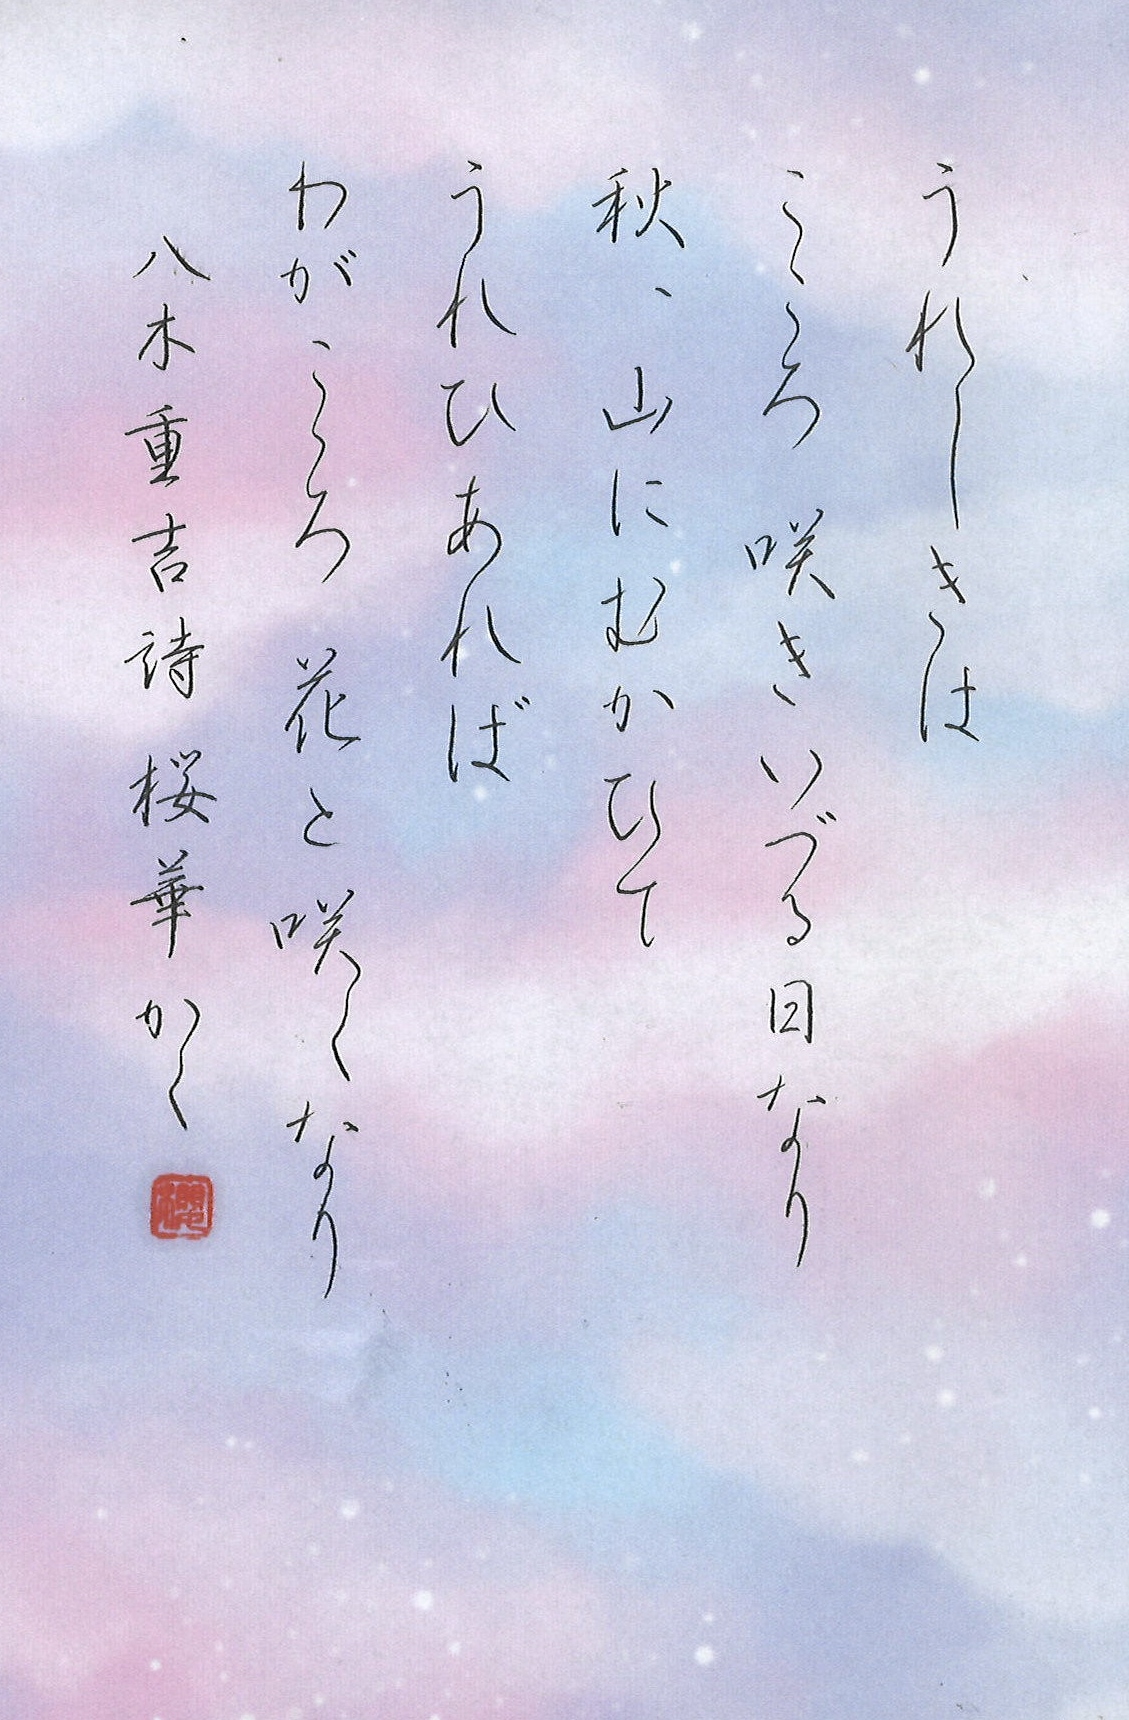 うれしきは
こころ 咲きいづる日なり
秋、山にむかひて
うれひあれば
わがこころ 花と咲くなり
八木重吉詩 桜華かく